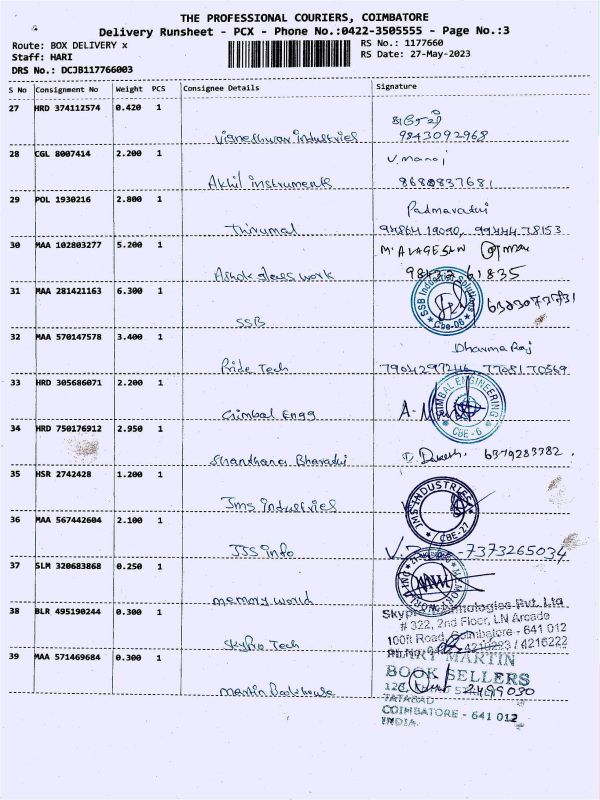 THE PROFESSIONAL COURIERS, COIMBATORE
Delivery Runsheet - PCX - Phone No.:0422-3505555 - Page No.:3
Route: BOX DELIVERY x RS No.: 1177660
Staff: HARI RS Date: 27-May-2023
DRS No.: DCJB117766003
S No Consignment No Weight PCS Consignee Details Signature
27 HRD 374112574 0.420 1
Vigneshwar industries 9843092968
28 CGL 8007414 2.200 1 V. Manoj
Akhil instruments 8680837681
29 POL 1930216 2.800 1 Padmavathi
Thirumal
30 MAA 102803277 5.200 1
Ashok glass work 61835
31 MAA 281421163 6.300 1 SSB Industrial Solutions
SSB Cbe-06
32 MAA 570147578 3.400 1 Dharma Raj
Pride Tech 7708170569
33 HRD 305686071 2.200 1 GIMBAL ENGINEERING
Gimbal Engg CBE-6
34 HRD 750176912 2.950 1
Shanthana Bharathi 6379283382.
35 HSR 2742428 1.200 1 JMS INDUSTRIES
Jms industries CBE-27
36 MAA 567442604 2.100 1
JJS info -7373265034
37 SLM 320683868 0.250 1
memory world
38 BLR 495190244 0.300 1 Technologies Pvt. Ltd
# 322, 2nd Floor, LN Arcade
100ft Road, Coimbatore - 641 012
Skypro Tech 4216222
39 MAA 571469684 0.300 1 MARTIN
BOOK SELLERS
Martin Bookhouse 2499030
TATABAD
COIMBATORE - 641 012
INDIA.